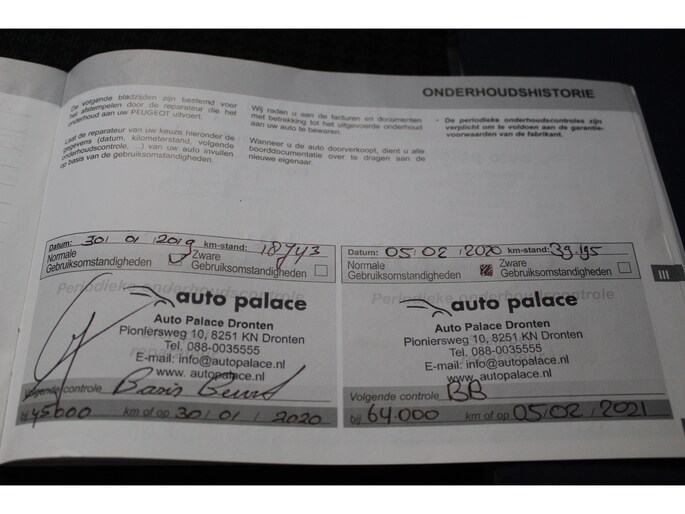 ONDERHOUDSHISTORIE
De volgende bladzijden zijn bestemd voor
het afstempelen door de reparateur die het
onderhoud aan uw PEUGEOT uitvoert.
Laat de reparateur van uw keuze hieronder de
gegevens (datum, kilometerstand, volgende
onderhoudscontrole, ...) van uw auto invullen
op basis van de gebruiksomstandigheden.
Wij raden u aan de facturen en documenten
met betrekking tot het uitgevoerde onderhoud
aan uw auto te bewaren.
Wanneer u de auto doorverkoopt, dient u alle
boorddocumentatie over te dragen aan de
nieuwe eigenaar.
- De periodieke onderhoudscontroles zijn
verplicht om te voldoen aan de garantie-
voorwaarden van de fabrikant.
Datum: 30/ 01 /2019 km-stand: 18943
Normale Zware
Gebruiksomstandigheden Gebruiksomstandigheden
Periodieke onderhoudscontrole
auto palace
Auto Palace Dronten
Pioniersweg 10, 8251 KN Dronten
Tel. 088-0035555
E-mail: info@autopalace.nl
www. autopalace.nl
Volgende controle Basis Beurt
bij 45000 km of op 30/ 01 / 2020
Datum: 05/ 02 / 2020 km-stand: 39.195
Normale Zware
Gebruiksomstandigheden Gebruiksomstandigheden
Periodieke onderhoudscontrole
auto palace
Auto Palace Dronten
Pioniersweg 10, 8251 KN Dronten
Tel. 088-0035555
E-mail: info@autopalace.nl
www. autopalace.nl
Volgende controle BB
bij 64.000 km of op 05/ 02 / 2021
III